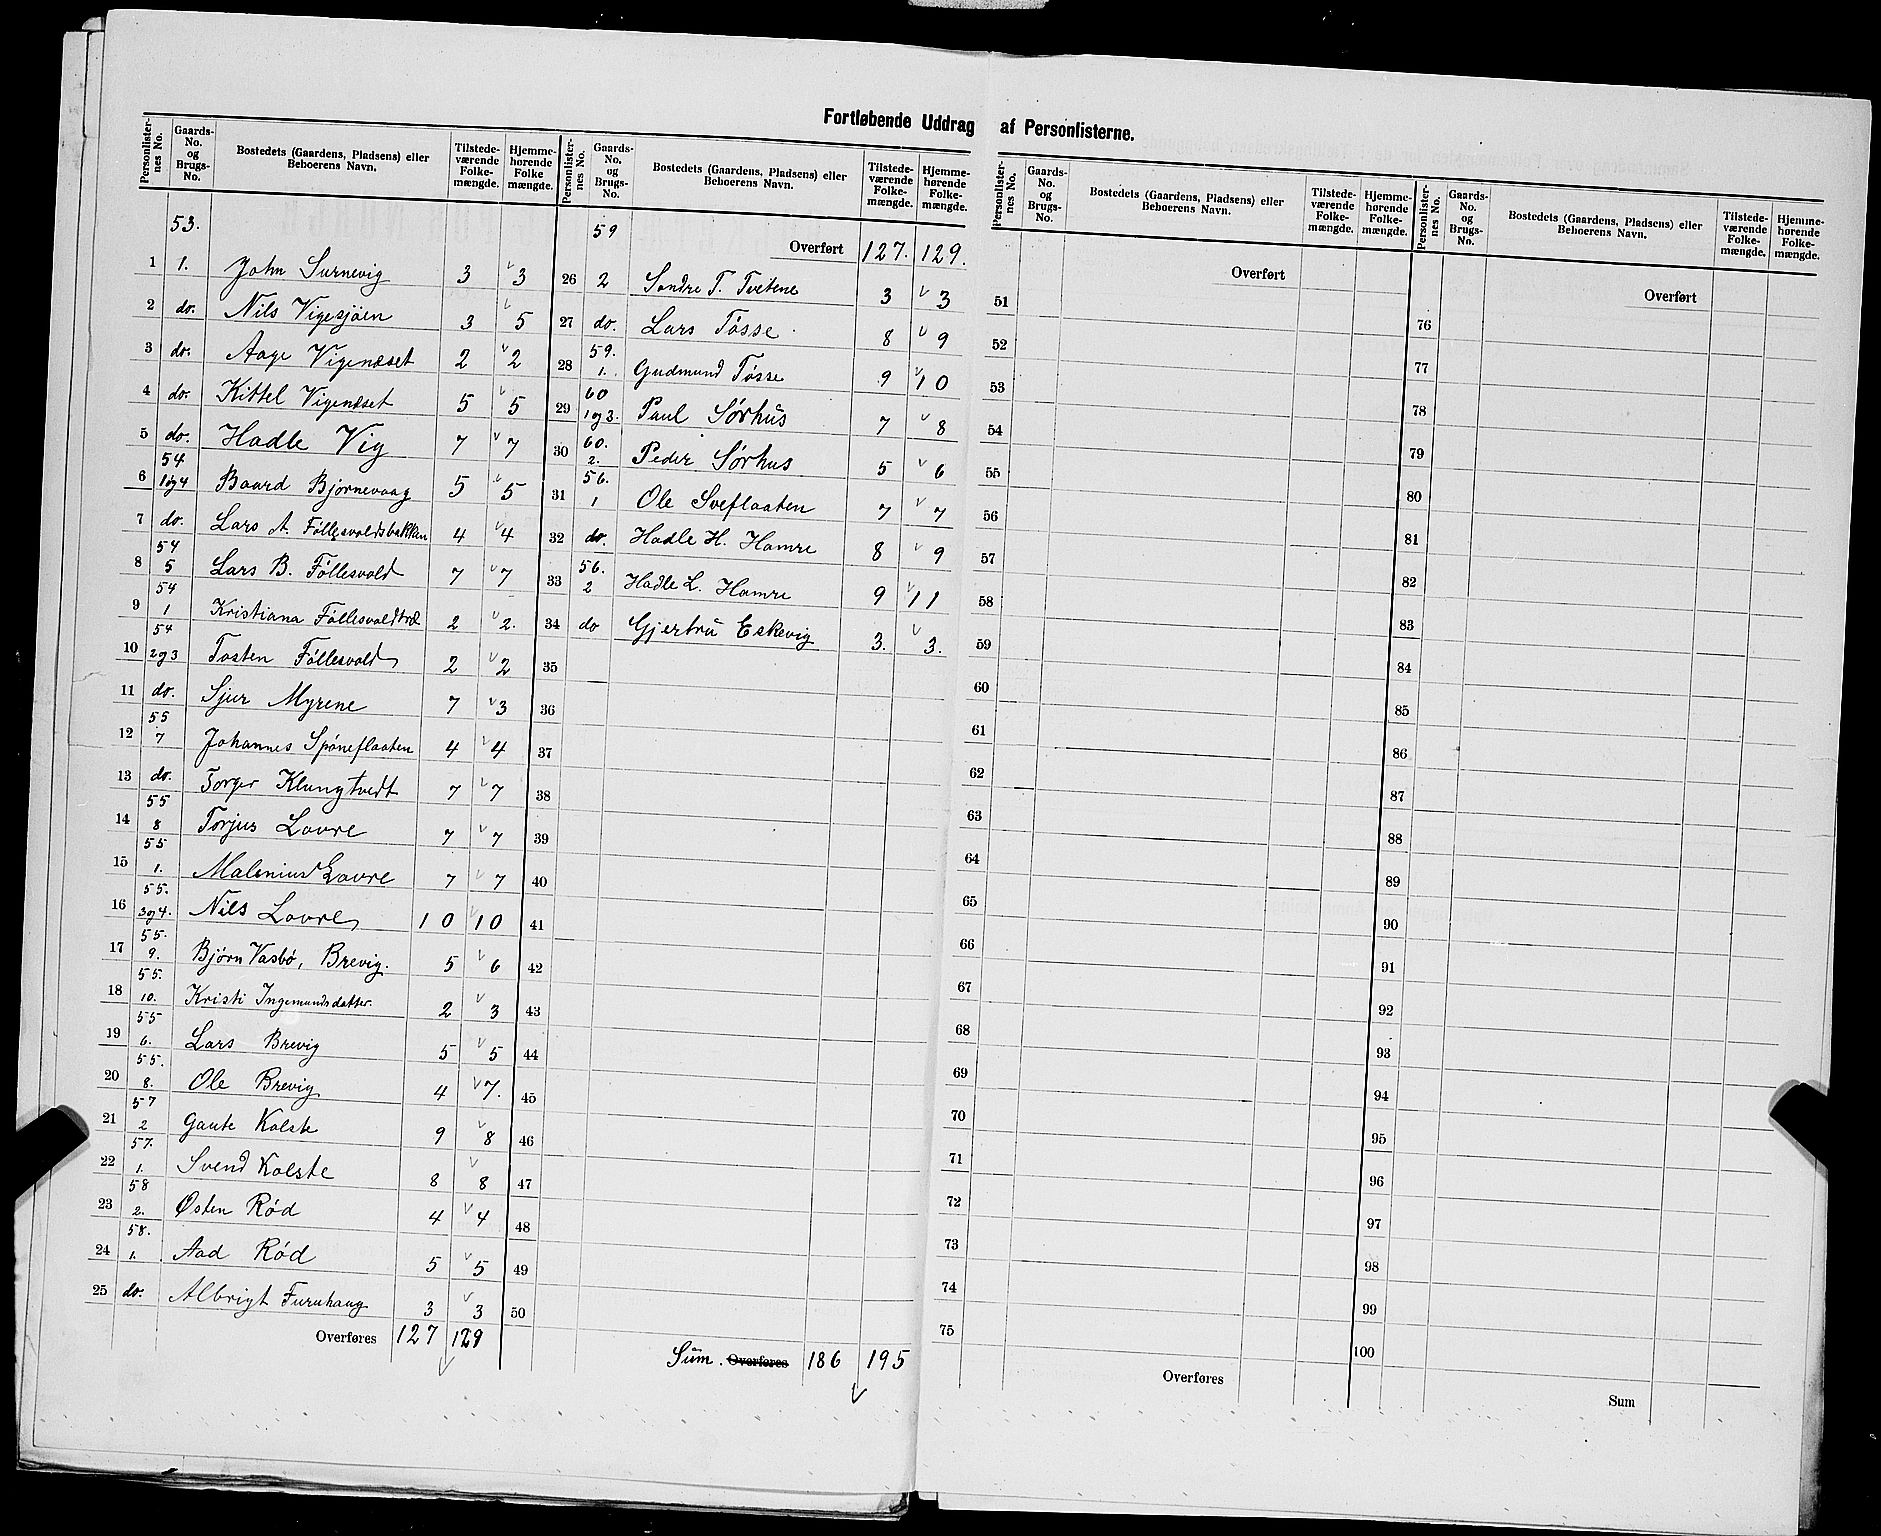 Fortløbende Uddrag af Personlisterne.
Personlisternes No. Gaards-No. og Brugs-No. Bostedets (Gaardens, Pladsens) eller Beboerens Navn. Tilstedeværende Folkemængde. Hjemmehørende Folkemængde.
53.
1 1. John Surnevig 3 3
2 do. Nils Vigesjøen 3 5
3 do. Aage Vigenæset 2 2
4 do. Kittel Vigenæset 5 5
5 do. Hadle Vig 7 7
54
6 1og4 Baard Bjørnevaag 5 5
7 do. Lars A. Föllesvoldsbakken 4 4
54
8 5 Lars B. Föllesvold 7 7
54
9 1 Kristiana Föllesvoldtræ 2 2.
54
10 2og3 Tosten Föllesvold 2 2
11 do. Sjur Myrene 7 3
55
12 7 Johannes Spöneflaaten 4 4
13 do. Torger Klungtvedt 7 7
55
14 8 Torjus Lovre 7 7
55
15 1. Malenius Lovre 7 7
55.
16 3og4. Nils Lovre 10 10
55.
17 9. Bjørn Vasbø, Brevig. 5 6
55.
18 10. Kristi Ingemundsdatter. 2 3
55
19 6. Lars Brevig 5 5
55.
20 8. Ole Brevig 4 7.
57
21 2 Gaute Kolste 9 8
57.
22 1. Svend Kolste 8 8
58
23 2. Østen Rød 4 4
58.
24 1. Aad Rød 5 5
25 do. Albrigt Furuhaug 3 3
Overføres 127 129
Personlisternes No. Gaards-No. og Brugs-No. Bostedets (Gaardens, Pladsens) eller Beboerens Navn. Tilstedeværende Folkemængde. Hjemmehørende Folkemængde.
59
Overført 127. 129.
26 2 Sondre T. Tveitene 3 3
27 do. Lars Tösse 8 9
59.
28 1. Gudmund Tösse 9 10
60
29 1og3. Paul Sørhus 7 8
60.
30 2. Peder Sørhus 5 6
56.
31 1 Ole Sveflaaten 7 7
32 do. Hadle H. Hamre 8 9
56.
33 2 Hadle L. Hamre 9 11
34 do Gjertru Eskevig 3. 3.
35
36
37
38
39
40
41
42
43
44
45
46
47
48
49
50
Sum. Overføres 186 195
Personlisternes No. Gaards-No. og Brugs-No. Bostedets (Gaardens, Pladsens) eller Beboerens Navn. Tilstedeværende Folkemængde. Hjemmehørende Folkemængde.
Overført
51
52
53
54
55
56
57
58
59
60
61
62
63
64
65
66
67
68
69
70
71
72
73
74
75
Overføres
Personlisternes No. Gaards-No. og Brugs-No. Bostedets (Gaardens, Pladsens) eller Beboerens Navn. Tilstedeværende Folkemængde. Hjemmehørende Folkemængde.
Overført
76
77
78
79
80
81
82
83
84
85
86
87
88
89
90
91
92
93
94
95
96
97
98
99
100
Sum